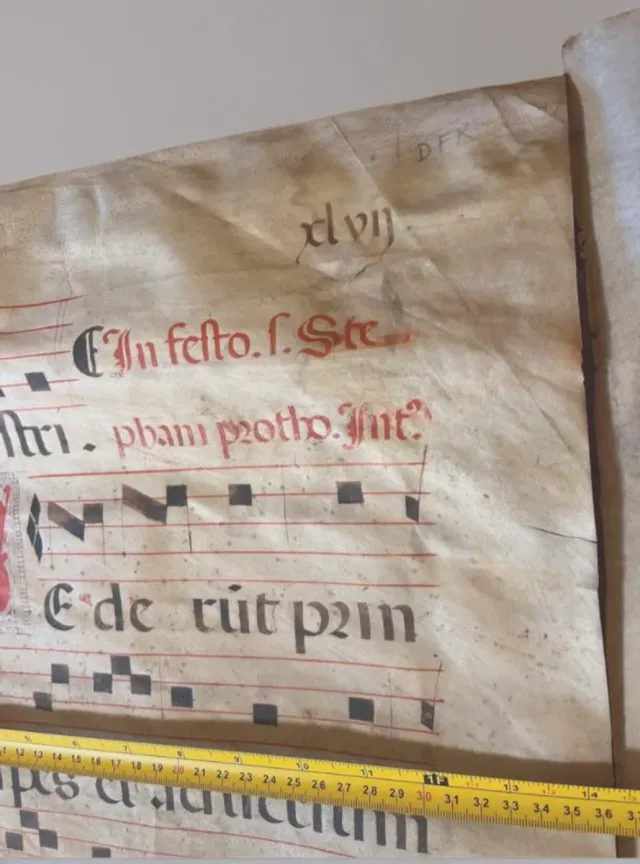 DFK
xlvij.
In festo. s. Ste
stri. phani protho. Int?
E de rūt prin
pes et
12 13 14 15 16 17 18 19 20 21 22 23 24 25 26 27 28 29 30 31 32 33 34 35 36